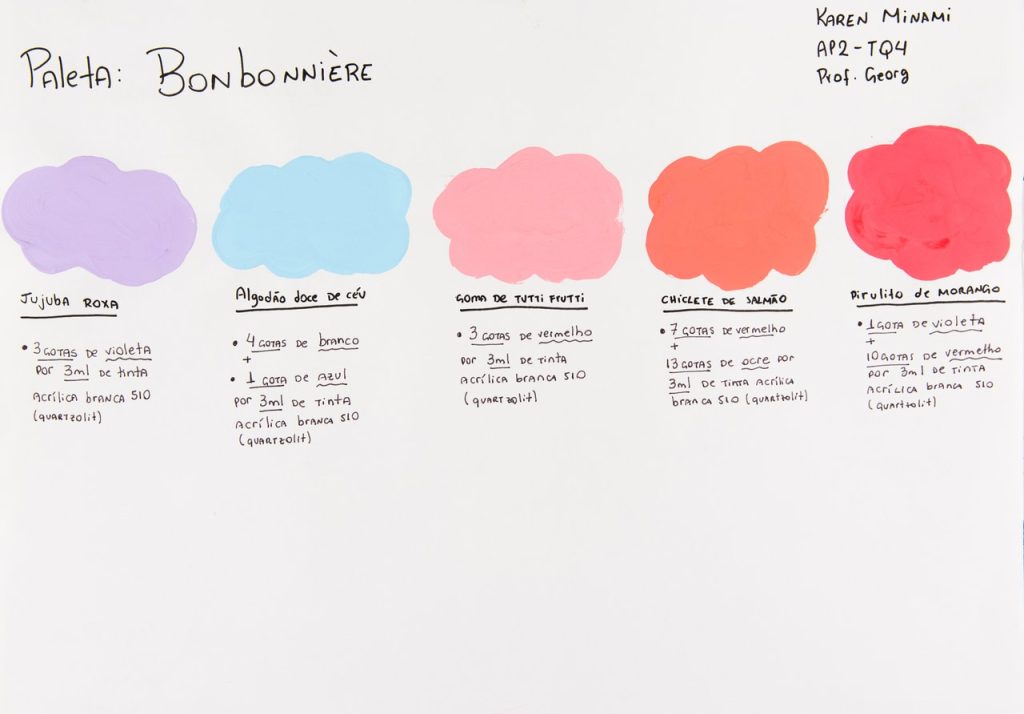 Paleta: Bonbonnière
Karen Minami
AP2-TQ4
Prof. Georg
Jujuba roxa
• 3 gotas de violeta
por 3ml de tinta
acrílica branca 510
(quartzolit)
Algodão doce de céu
• 4 gotas de branco
+
• 1 gota de azul
por 3ml de tinta
acrílica branca 510
(quartzolit)
Goma de tutti frutti
• 3 gotas de vermelho
por 3ml de tinta
acrílica branca 510
(quartzolit)
Chiclete de salmão
• 7 gotas de vermelho
+
13 gotas de ocre por
3ml de tinta acrílica
branca 510 (quartzolit)
Pirulito de morango
• 1 gota de violeta
+
10 gotas de vermelho
por 3ml de tinta
acrílica branca 510
(quartzolit)